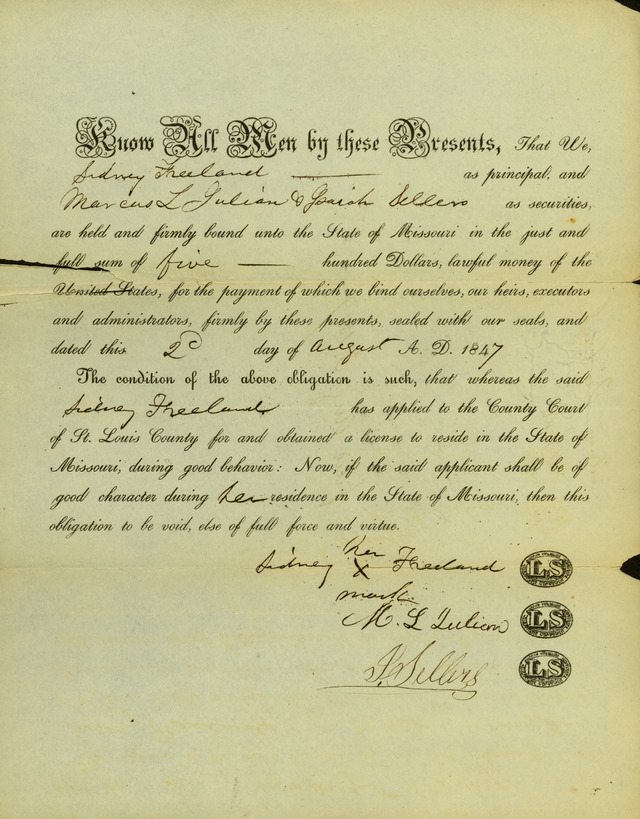 Know All Men by these Presents, That We,
Sidney Freeland as principal, and
Marcus L Julian & Isaiah Sellers as securities,
are held and firmly bound unto the State of Missouri in the just and
full sum of five hundred Dollars, lawful money of the
United States, for the payment of which we bind ourselves, our heirs, executors
and administrators, firmly by these presents, sealed with our seals, and
dated this 2d day of August A. D. 1847
The condition of the above obligation is such, that whereas the said
Sidney Freeland has applied to the County Court
of St. Louis County for and obtained a license to reside in the State of
Missouri, during good behavior: Now, if the said applicant shall be of
good character during her residence in the State of Missouri, then this
obligation to be void, else of full force and virtue.
her
Sidney X Freeland LS
mark
M. L Julian LS
I. Sellers LS